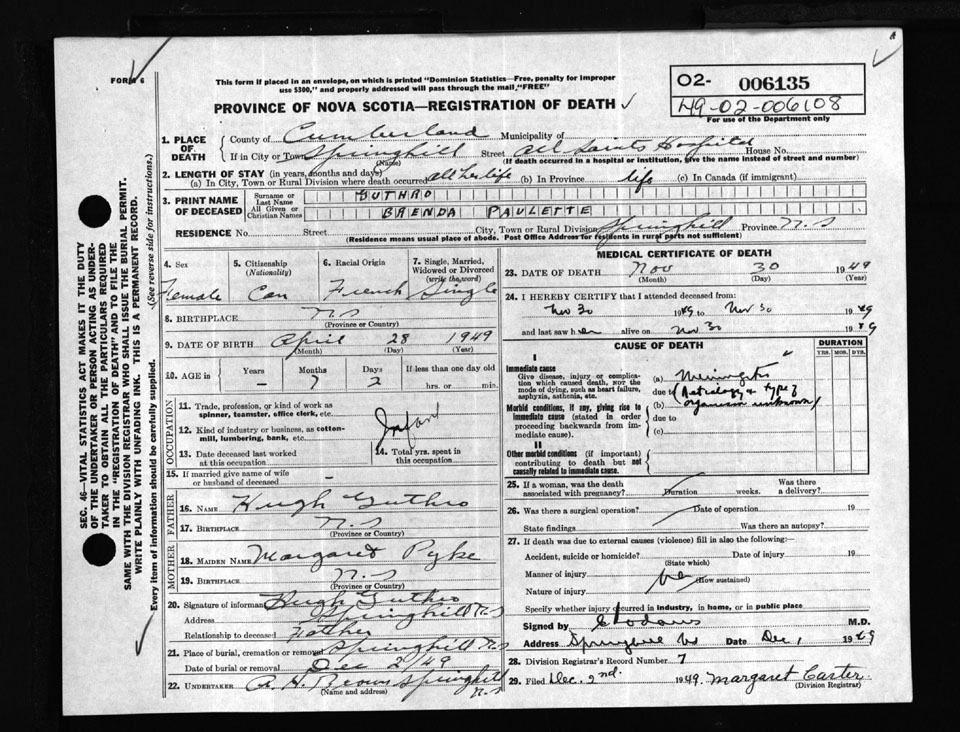 FORM 6
This form if placed in an envelope, on which is printed "Dominion Statistics—Free, penalty for improper
use $300," and properly addressed will pass through the mail, "FREE"
02- 006135
49-02-006108
For use of the Department only
PROVINCE OF NOVA SCOTIA—REGISTRATION OF DEATH
1. PLACE OF DEATH
County of Cumberland Municipality of
If in City or Town Springhill Street All Saints Hospital House No.
(Name) (If death occurred in a hospital or institution, give the name instead of street and number)
2. LENGTH OF STAY (in years, months and days)
(a) In City, Town or Rural Division where death occurred all her life (b) In Province life (c) In Canada (if immigrant)
3. PRINT NAME OF DECEASED
Surname or Last Name GUTHRO
All Given or Christian Names BRENDA PAULETTE
RESIDENCE No. Street City, Town or Rural Division Springhill Province N.S
(Residence means usual place of abode. Post Office Address for residents in rural parts not sufficient)
4. Sex
Female
5. Citizenship
(Nationality)
Can
6. Racial Origin
French
7. Single, Married, Widowed or Divorced
(write the word)
Single
8. BIRTHPLACE N.S
(Province or Country)
9. DATE OF BIRTH April 28 1949
(Month) (Day) (Year)
10. AGE in Years Months Days If less than one day old
– 7 2 hrs. or min.
OCCUPATION
11. Trade, profession, or kind of work as
spinner, teamster, office clerk, etc.
12. Kind of industry or business, as cotton-
mill, lumbering, bank, etc.
Infant
13. Date deceased last worked
at this occupation
14. Total yrs. spent in
this occupation
15. If married give name of wife
or husband of deceased –
FATHER
16. NAME Hugh Guthro
17. BIRTHPLACE N.S
(Province or Country)
MOTHER
18. MAIDEN NAME Margaret Pyke
19. BIRTHPLACE N.S
(Province or Country)
20. Signature of informant Hugh Guthro
Address Springhill N.S
Relationship to deceased Father
21. Place of burial, cremation or removal Springhill N.S
Date of burial or removal Dec 2/49
22. UNDERTAKER A. H. Brown Springhill N.S
(Name and address)
MEDICAL CERTIFICATE OF DEATH
23. DATE OF DEATH Nov 30 1949
(Month) (Day) (Year)
24. I HEREBY CERTIFY that I attended deceased from:
Nov 30 1949 to Nov 30 1949
and last saw her alive on Nov 30 1949
CAUSE OF DEATH
DURATION
YRS. MOS. DYS.
I
Immediate cause
Give disease, injury or compli-
cation which caused death, NOT the
mode of dying, such as heart failure,
asphyxia, asthenia, etc.
(a) Meningitis
due to (Aetiology & type of
(b) organism unknown)
Morbid conditions, if any, giving rise to
immediate cause (stated in order
proceeding backwards from im-
mediate cause).
due to
(c)
II
Other morbid conditions (if important)
contributing to death but not
causally related to immediate cause.
25. If a woman, was the death
associated with pregnancy? Duration weeks. Was there
a delivery?
26. Was there a surgical operation? Date of operation 19
State findings Was there an autopsy?
27. If death was due to external causes (violence) fill in also the following:—
Accident, suicide or homicide? Date of injury 19
(State which)
Manner of injury
(How sustained)
Nature of injury
Specify whether injury occurred in industry, in home, or in public place
Signed by M.D.
Address Springhill NS Date Dec 1 1949
28. Division Registrar's Record Number 7
29. Filed Dec. 2nd. 1949. Margaret Carter
(Division Registrar)
SEC. 46—VITAL STATISTICS ACT MAKES IT THE DUTY
OF THE UNDERTAKER OR PERSON ACTING AS UNDER-
TAKER TO OBTAIN ALL THE PARTICULARS REQUIRED
IN THE "REGISTRATION OF DEATH" AND TO FILE THE
SAME WITH THE DIVISION REGISTRAR WHO SHALL ISSUE THE BURIAL PERMIT.
WRITE PLAINLY WITH UNFADING INK. THIS IS A PERMANENT RECORD.
Every item of information should be carefully supplied. (See reverse side for instructions.)